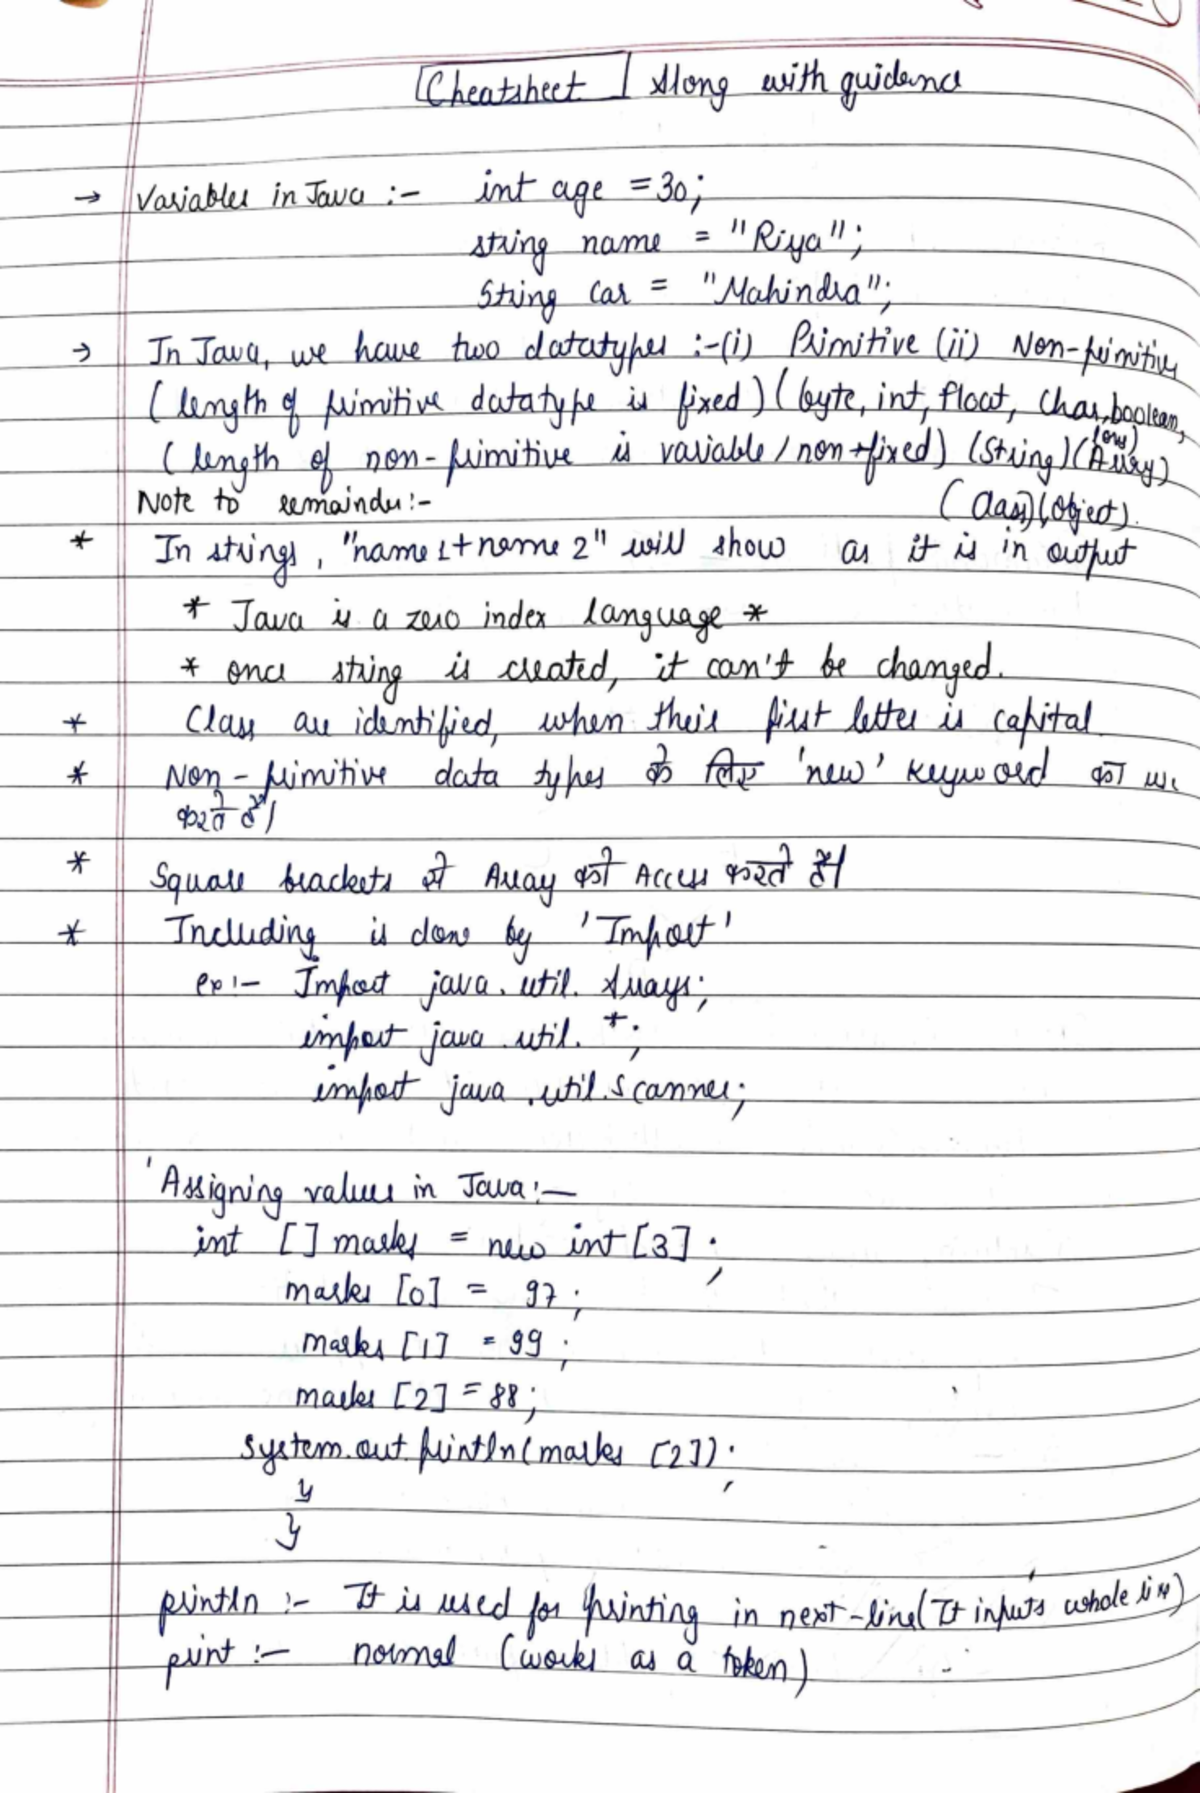 Cheatsheet Along with guidance
→ Variables in Java :- int age = 30;
string name = "Riya";
String Car = "Mahindra";
→ In Java, we have two datatypes :-(i) Primitive (ii) Non-primitive
(length of primitive datatype is fixed) (byte, int, float, Char, boolean,
(length of non-primitive is variable/non-fixed) (String) (Array)
Note to remainder:- (Class) (object).
* In strings, "name1+name2" will show as it is in output
* Java is a zero index language *
* once string is created, it can't be changed.
* Class are identified, when their first letter is capital
* Non-primitive data types के लिए 'new' keyword का use
करते हैं।
* Square brackets से Array को Access करते हैं।
* Including is done by 'Import'
ex:- Import java.util.Arrays;
import java.util.*;
import java.util.Scanner;
'Assigning values in Java:-
int [] marks = new int [3];
marks [0] = 97;
marks [1] = 99;
marks [2] = 88;
system.out.println(marks [2]);
}
}
println :- It is used for printing in next-line (It inputs whole line)
print :- normal (works as a token)